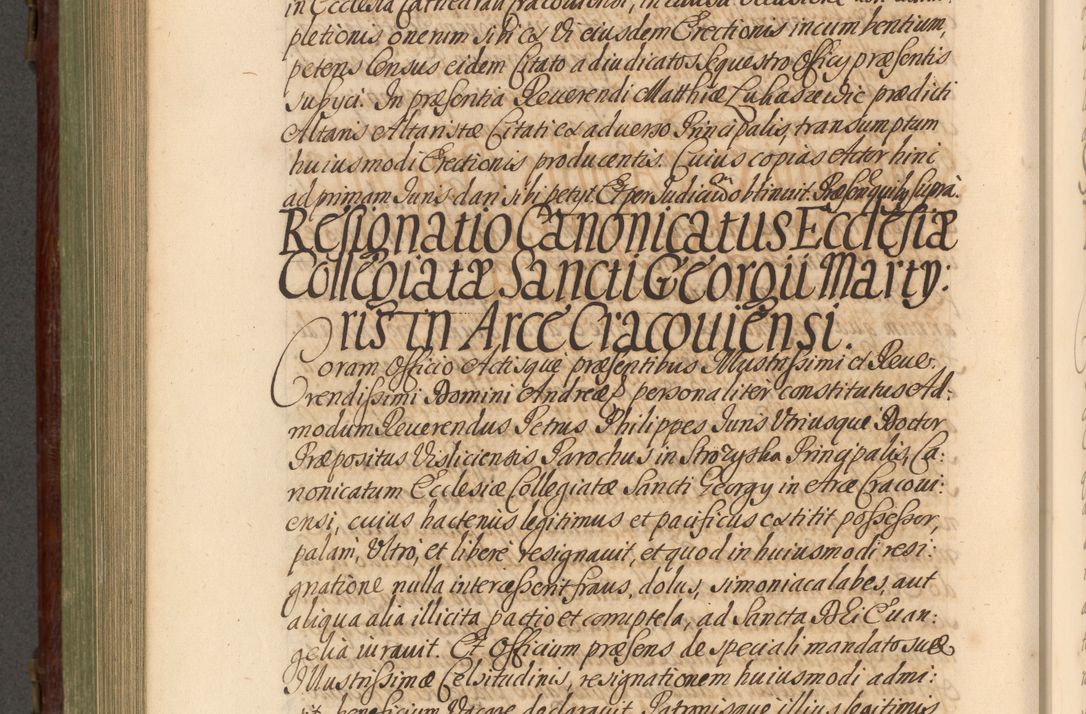 in Ecclesia Cathedrali Cracoviensi, in causa
pletionis onerum sibi ex Vi eiusdem Erectionis incumbentium,
petens Census eidem Citato adiudicatos Sequestro Officij præsentis
subijci. In præsentia Reuerendi Matthiæ Lukaszeidic prædicti
Altaris Altaristæ Citati ex aduerso Principalis, transumptum
huiusmodi Erectionis producentis. Cuius copias Actor hinc
ad primam Juris dari sibi petijt. Et per Judicium obtinuit. Præsentibus quibus supra.
Resignatio Canonicatus Ecclesiæ
Collegiatæ Sancti Georgii Marty:
ris in Arce Cracouiensi.
Coram Officio Actisque præsentibus Illustrissimi et Reue:
rendissimi Domini Andreæ personaliter constitutus Ad:
modum Reuerendus Petrus Philippes Juris Vtriusque Doctor
Præpositus Visliciensis Parochus in Strożyska Principalis, Ca:
nonicatum Ecclesiæ Collegiatæ Sancti Georgy in Arce Cracoui:
ensi, cuius hactenus legitimus et pacificus extitit possessor,
palam, Vltro, et libere resignauit, et quod in huiusmodi resi:
gnatione nulla intercesserit fraus, dolus, simoniaca labes, aut
aliqua alia illicita pactio et corruptela, ad Sancta DEi Euan:
gelia iurauit. Et Officium præsens de speciali mandato suæ
Illustrissimæ Celsitudinis, resignationem huiusmodi admi:
sit, beneficium Vacare declarauit, Patronisque illius legitimis